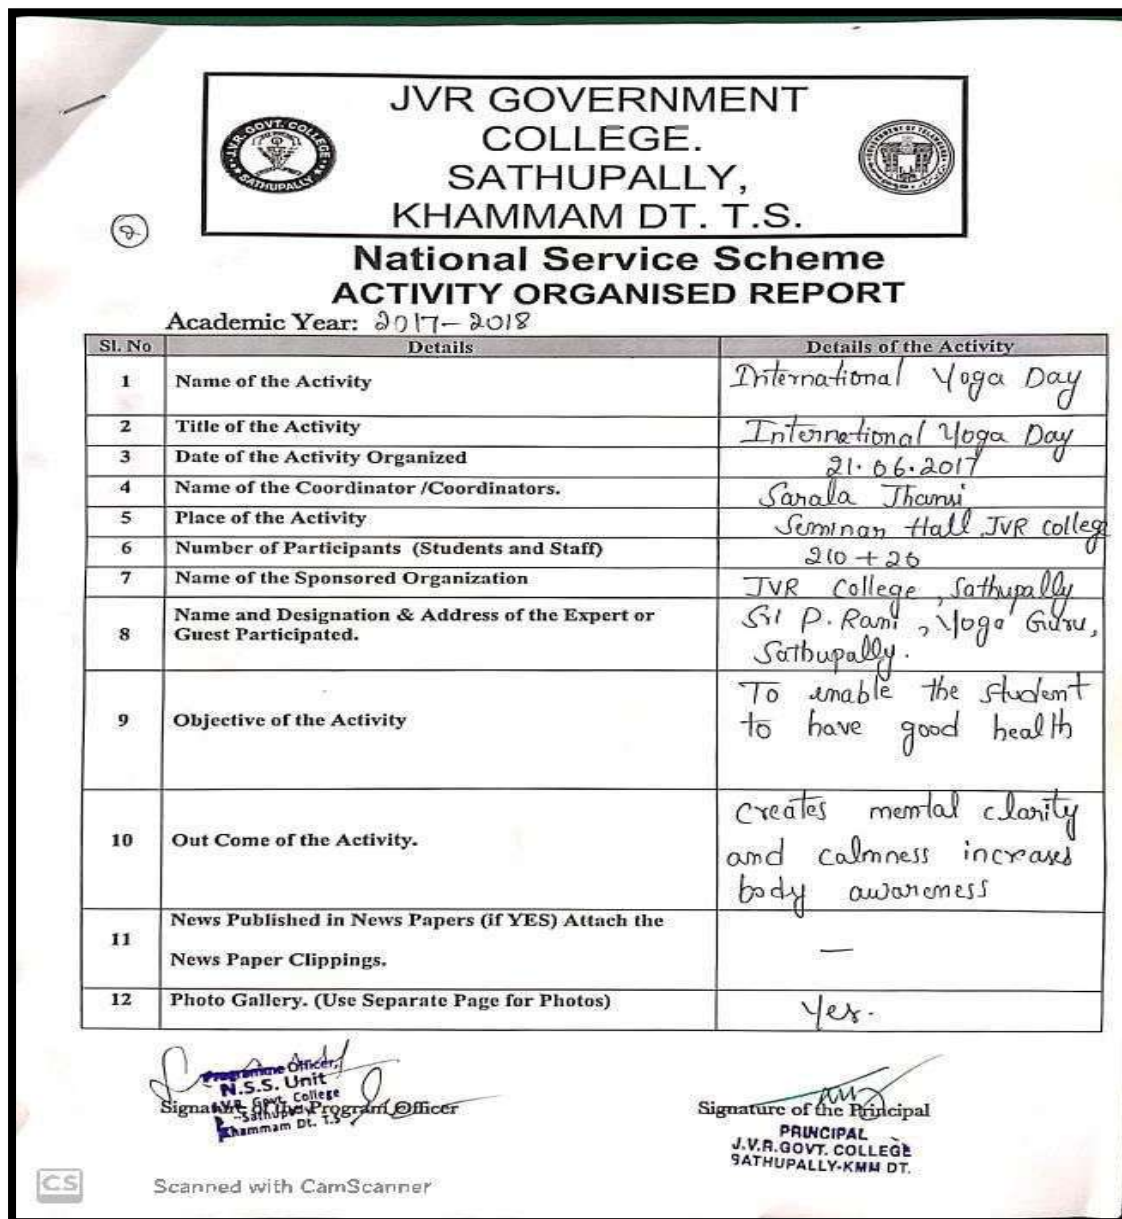 JVR GOVERNMENT
COLLEGE.
SATHUPALLY,
KHAMMAM DT. T.S.
J.V.R. GOVT. COLLEGE
SATHUPALLY
GOVERNMENT OF TELANGANA
2
National Service Scheme
ACTIVITY ORGANISED REPORT
Academic Year: 2017-2018
Sl. No Details Details of the Activity
1 Name of the Activity International Yoga Day
2 Title of the Activity International Yoga Day
3 Date of the Activity Organized 21.06.2017
4 Name of the Coordinator /Coordinators. Sarala Jhansi
5 Place of the Activity Seminar Hall JVR college
6 Number of Participants (Students and Staff) 210 + 26
7 Name of the Sponsored Organization JVR College, Sathupally
8 Name and Designation & Address of the Expert or Sri P. Rani, Yoga Guru,
Guest Participated. Sathupally.
To enable the student
9 Objective of the Activity to have good health
creates mental clarity
10 Out Come of the Activity. and calmness increases
body awareness
News Published in News Papers (if YES) Attach the
11 —
News Paper Clippings.
12 Photo Gallery. (Use Separate Page for Photos) Yes.
Programme Officer,
N.S.S. Unit
J.V.R. Govt. College
Sathupally
Khammam Dt. T.S
Signature of the Program Officer
Signature of the Principal
PRINCIPAL
J.V.R.GOVT. COLLEGE
SATHUPALLY-KMM DT.
CS Scanned with CamScanner